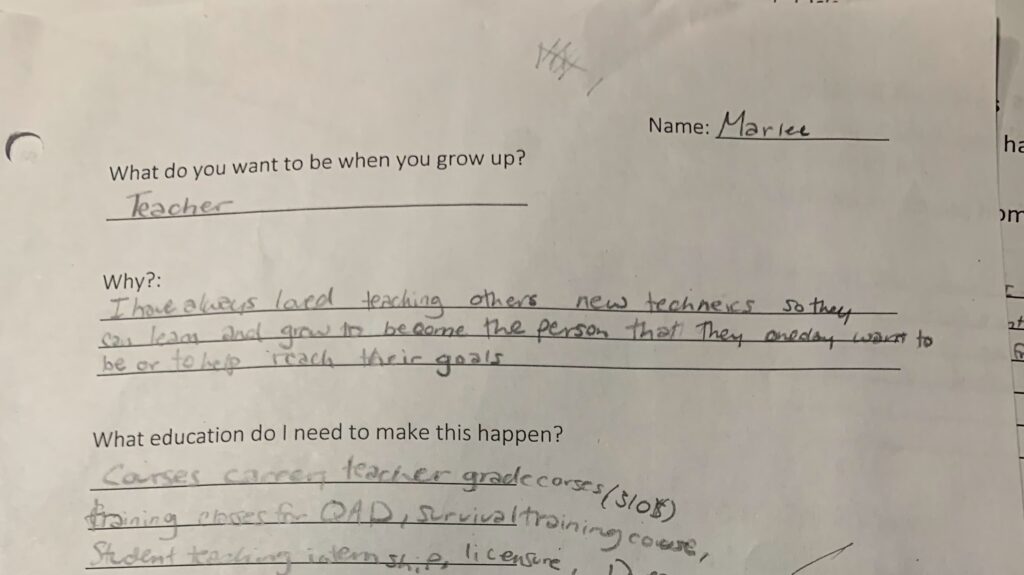 Name: Marlee
What do you want to be when you grow up?
Teacher
Why?:
I have always loved teaching others new techneics so they
can learn and grow to become the person that they oneday want to
be or to help reach their goals
What education do I need to make this happen?
Courses career teacher grade corses
training closes for QAD, survival training course,
Student teaching internship, licensure,
ha
om